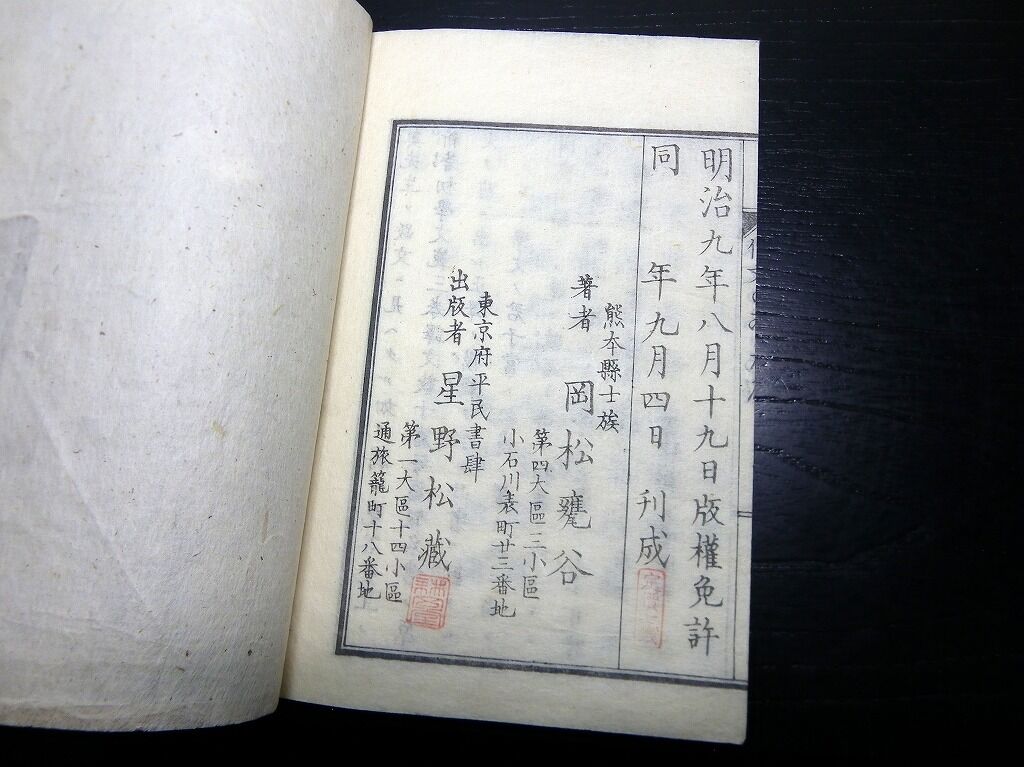 明治九年八月十九日版權免許
同　年九月四日　刋成
熊本縣士族
著者　岡松甕谷
第四大區三小區
小石川表町廿三番地
東京府平民書肆
出版者　星野松藏
第一大區十四小區
通旅籠町十八番地